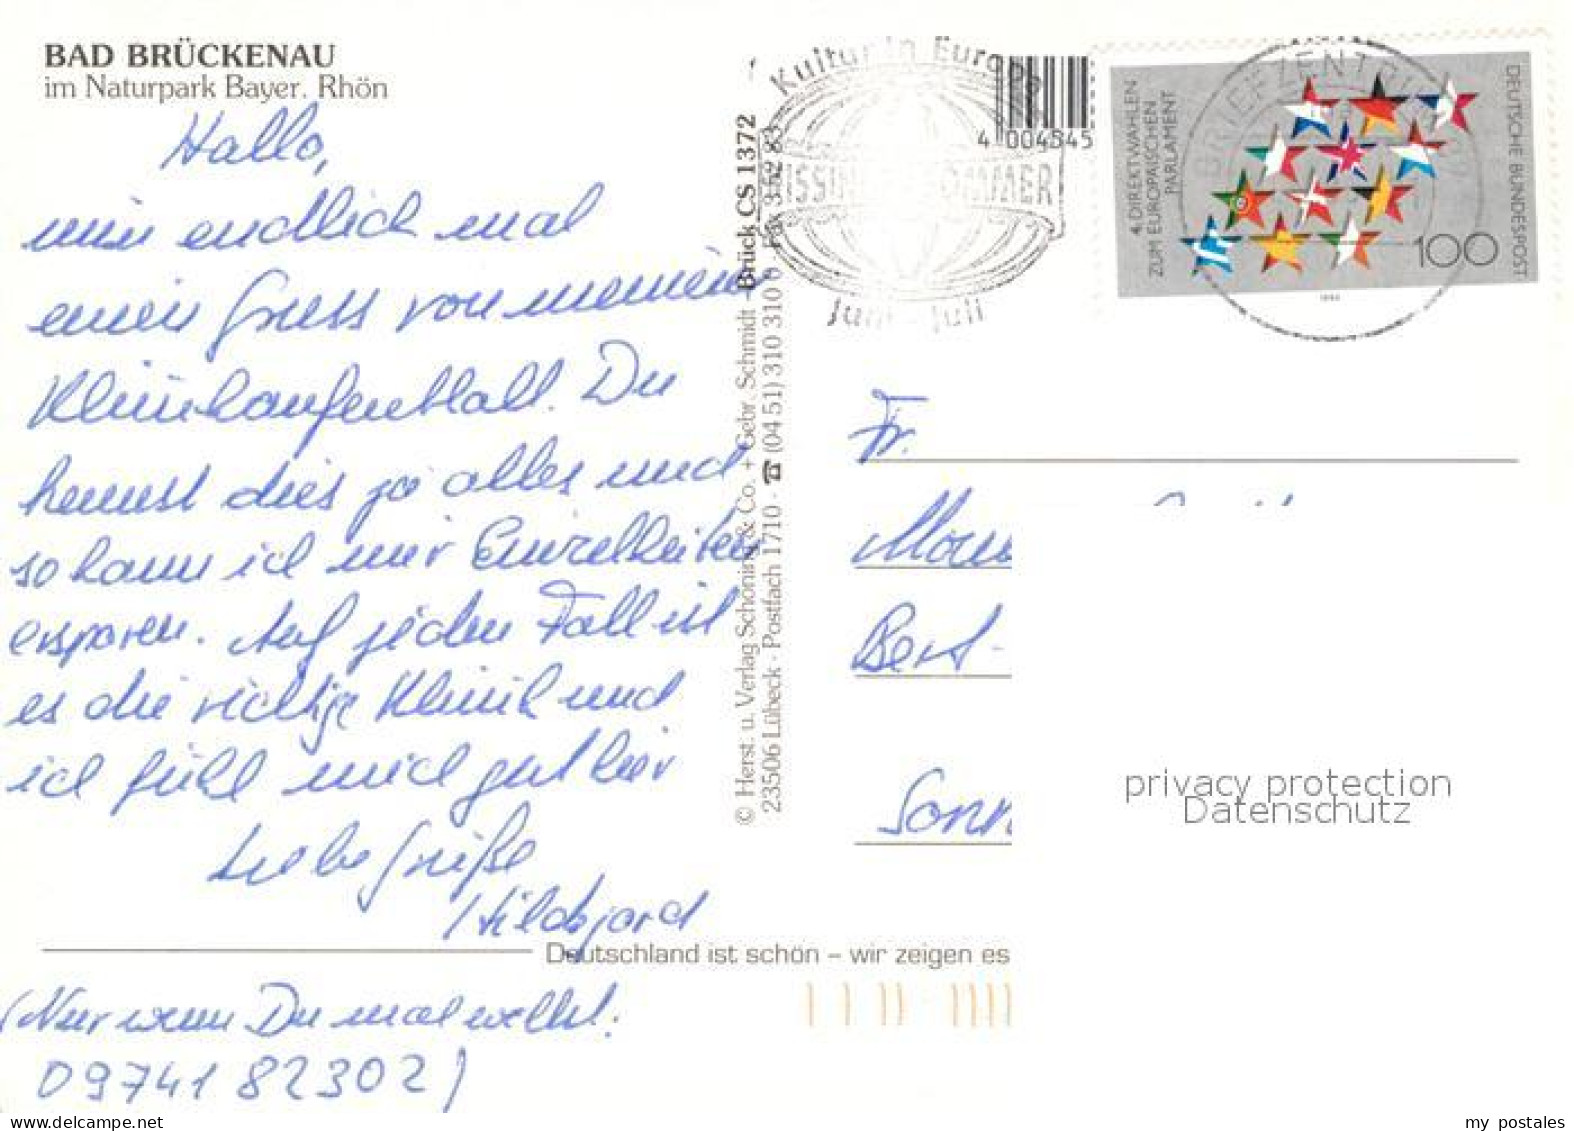 BAD BRÜCKENAU
im Naturpark Bayer. Rhön
Hallo,
nun endlich mal
einen Gruss von meinem
Klinikaufenthalt. Du
kennst dies ja alles und
so kann ich mir Einzelheiten
ersparen. Auf jeden Fall ist
es die richtige Klinik und
ich fühl mich gut hier
Liebe Grüße
Hildegard
(Nur wenn Du mal willst:
09741 82302)
© Herst. u. Verlag Schöning & Co. + Gebr. Schmidt - Brück CS 1372
23506 Lübeck · Postfach 1710 · ☎ (04 51) 310 310
Deutschland ist schön – wir zeigen es
Kultur in Europa
SOMMER
Juni - Juli
4 004845
4. DIREKTWAHLEN
ZUM EUROPÄISCHEN
PARLAMENT
100
DEUTSCHE BUNDESPOST
BRIEFZENTRUM
Fr.
Bert-
Sonn
privacy protection
Datenschutz
www.delcampe.net
my postales